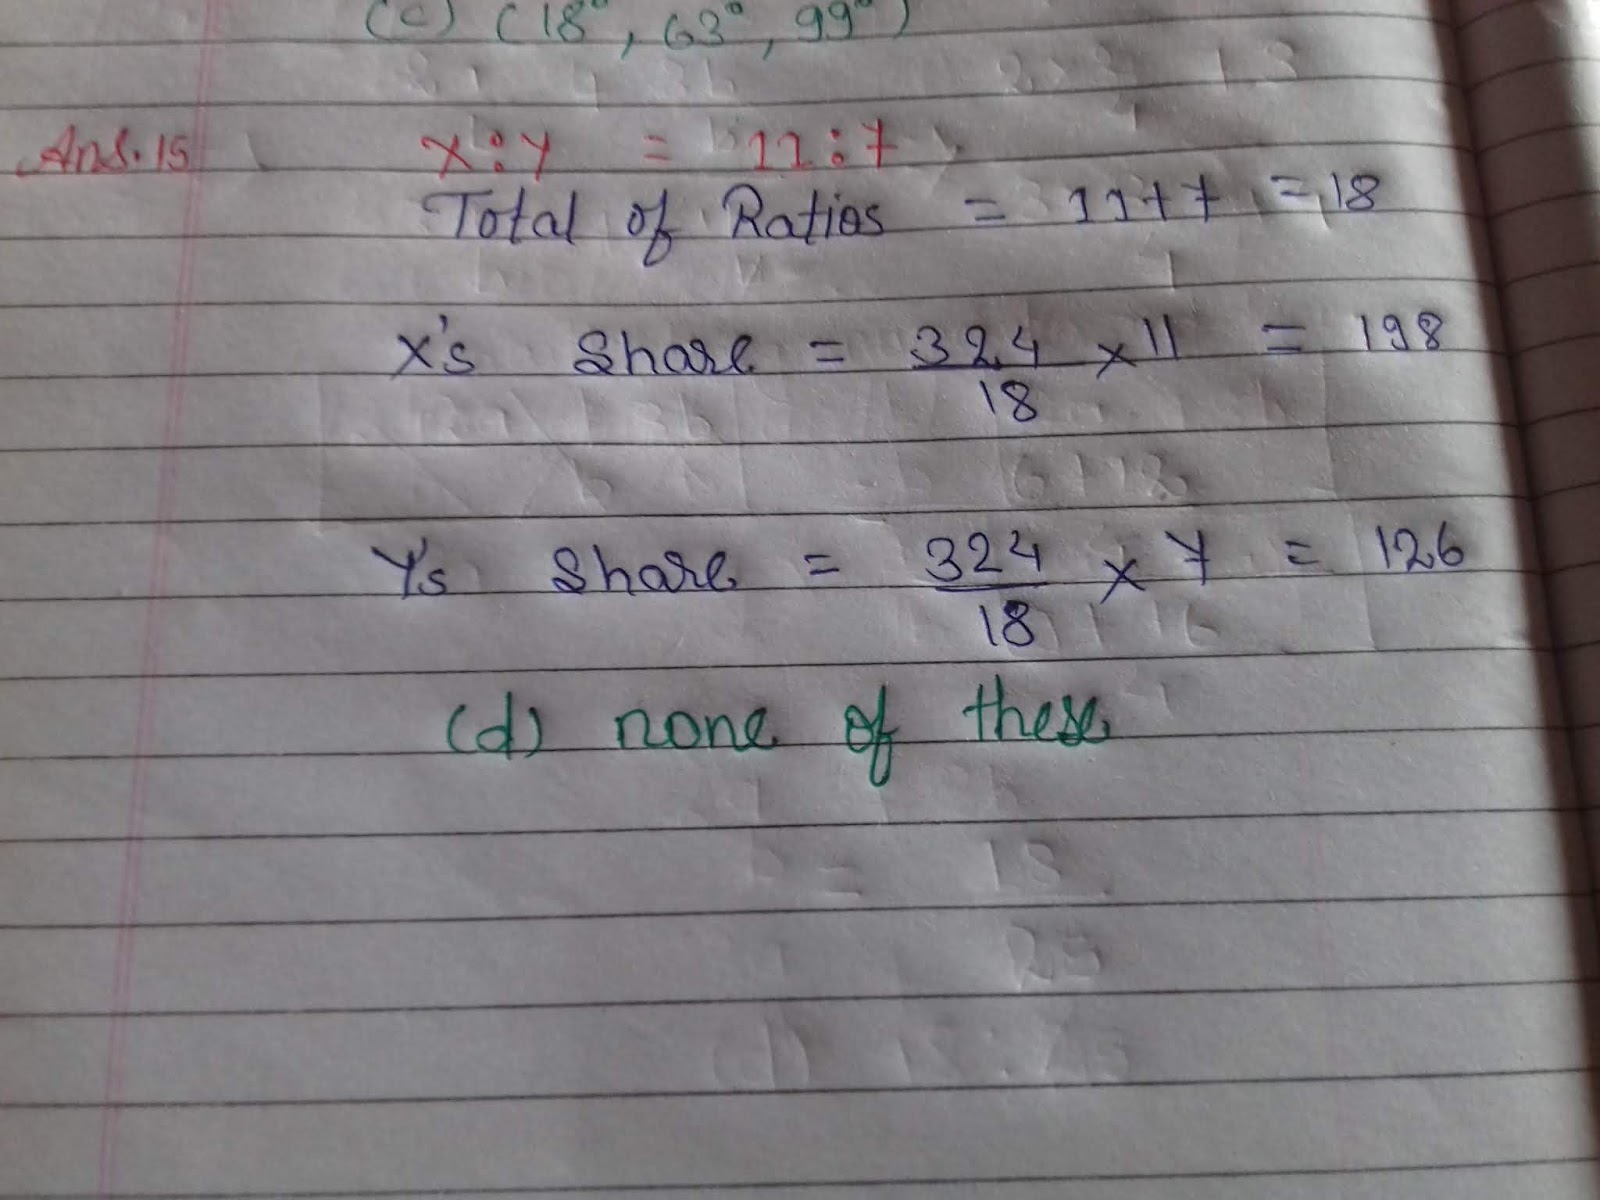 (c) (18°, 63°, 99°)
Ans. 15 x:y = 11:7
Total of Ratios = 11+7 = 18
X's Share = 324/18 × 11 = 198
Y's Share = 324/18 × 7 = 126
(d) none of these